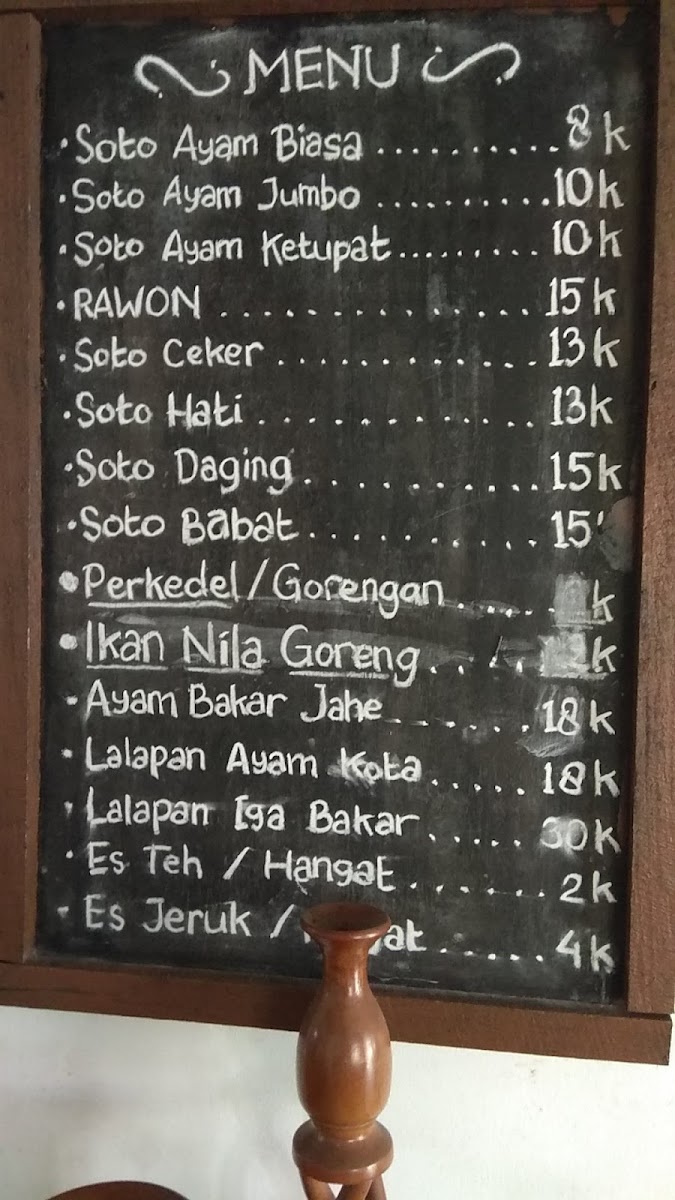 MENU
• Soto Ayam Biasa .......... 8k
• Soto Ayam Jumbo .......... 10k
• Soto Ayam Ketupat ......... 10k
• RAWON .............. 15k
• Soto Ceker ............ 13k
• Soto Hati ............ 13k
• Soto Daging ........... 15k
• Soto Babat .......... 15
• Perkedel / Gorengan ..... k
• Ikan Nila Goreng .... k
- Ayam Bakar Jahe ....... 18k
• Lalapan Ayam Kota ..... 18k
• Lalapan Iga Bakar ..... 30k
• Es Teh / Hangat ....... 2k
- Es Jeruk / ...... 4k